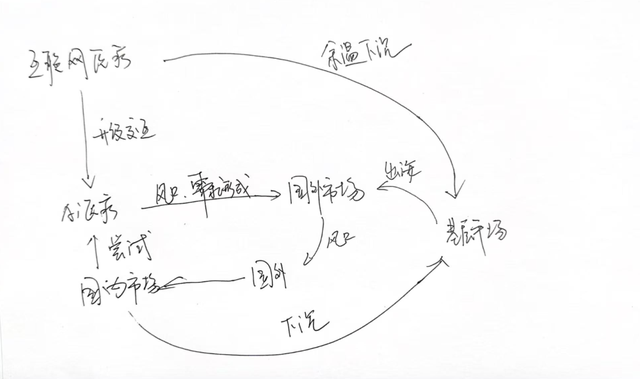 互联网医疗
余温下沉
升级交互
出海
AI医疗
风口、
国外市场
基层市场
个尝试
风口
国内市场
国外
下沉